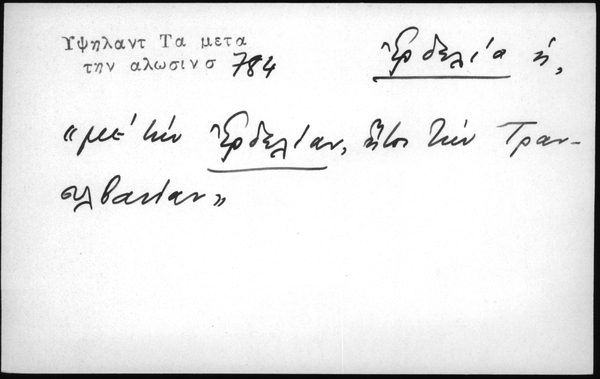 Υψηλαντ Τα μετα
την αλωσινσ 784
Ἐρδελία ἡ,
«μὲ τὴν Ἐρδελίαν, ἤτοι τὴν Τραν-
συλβανίαν»